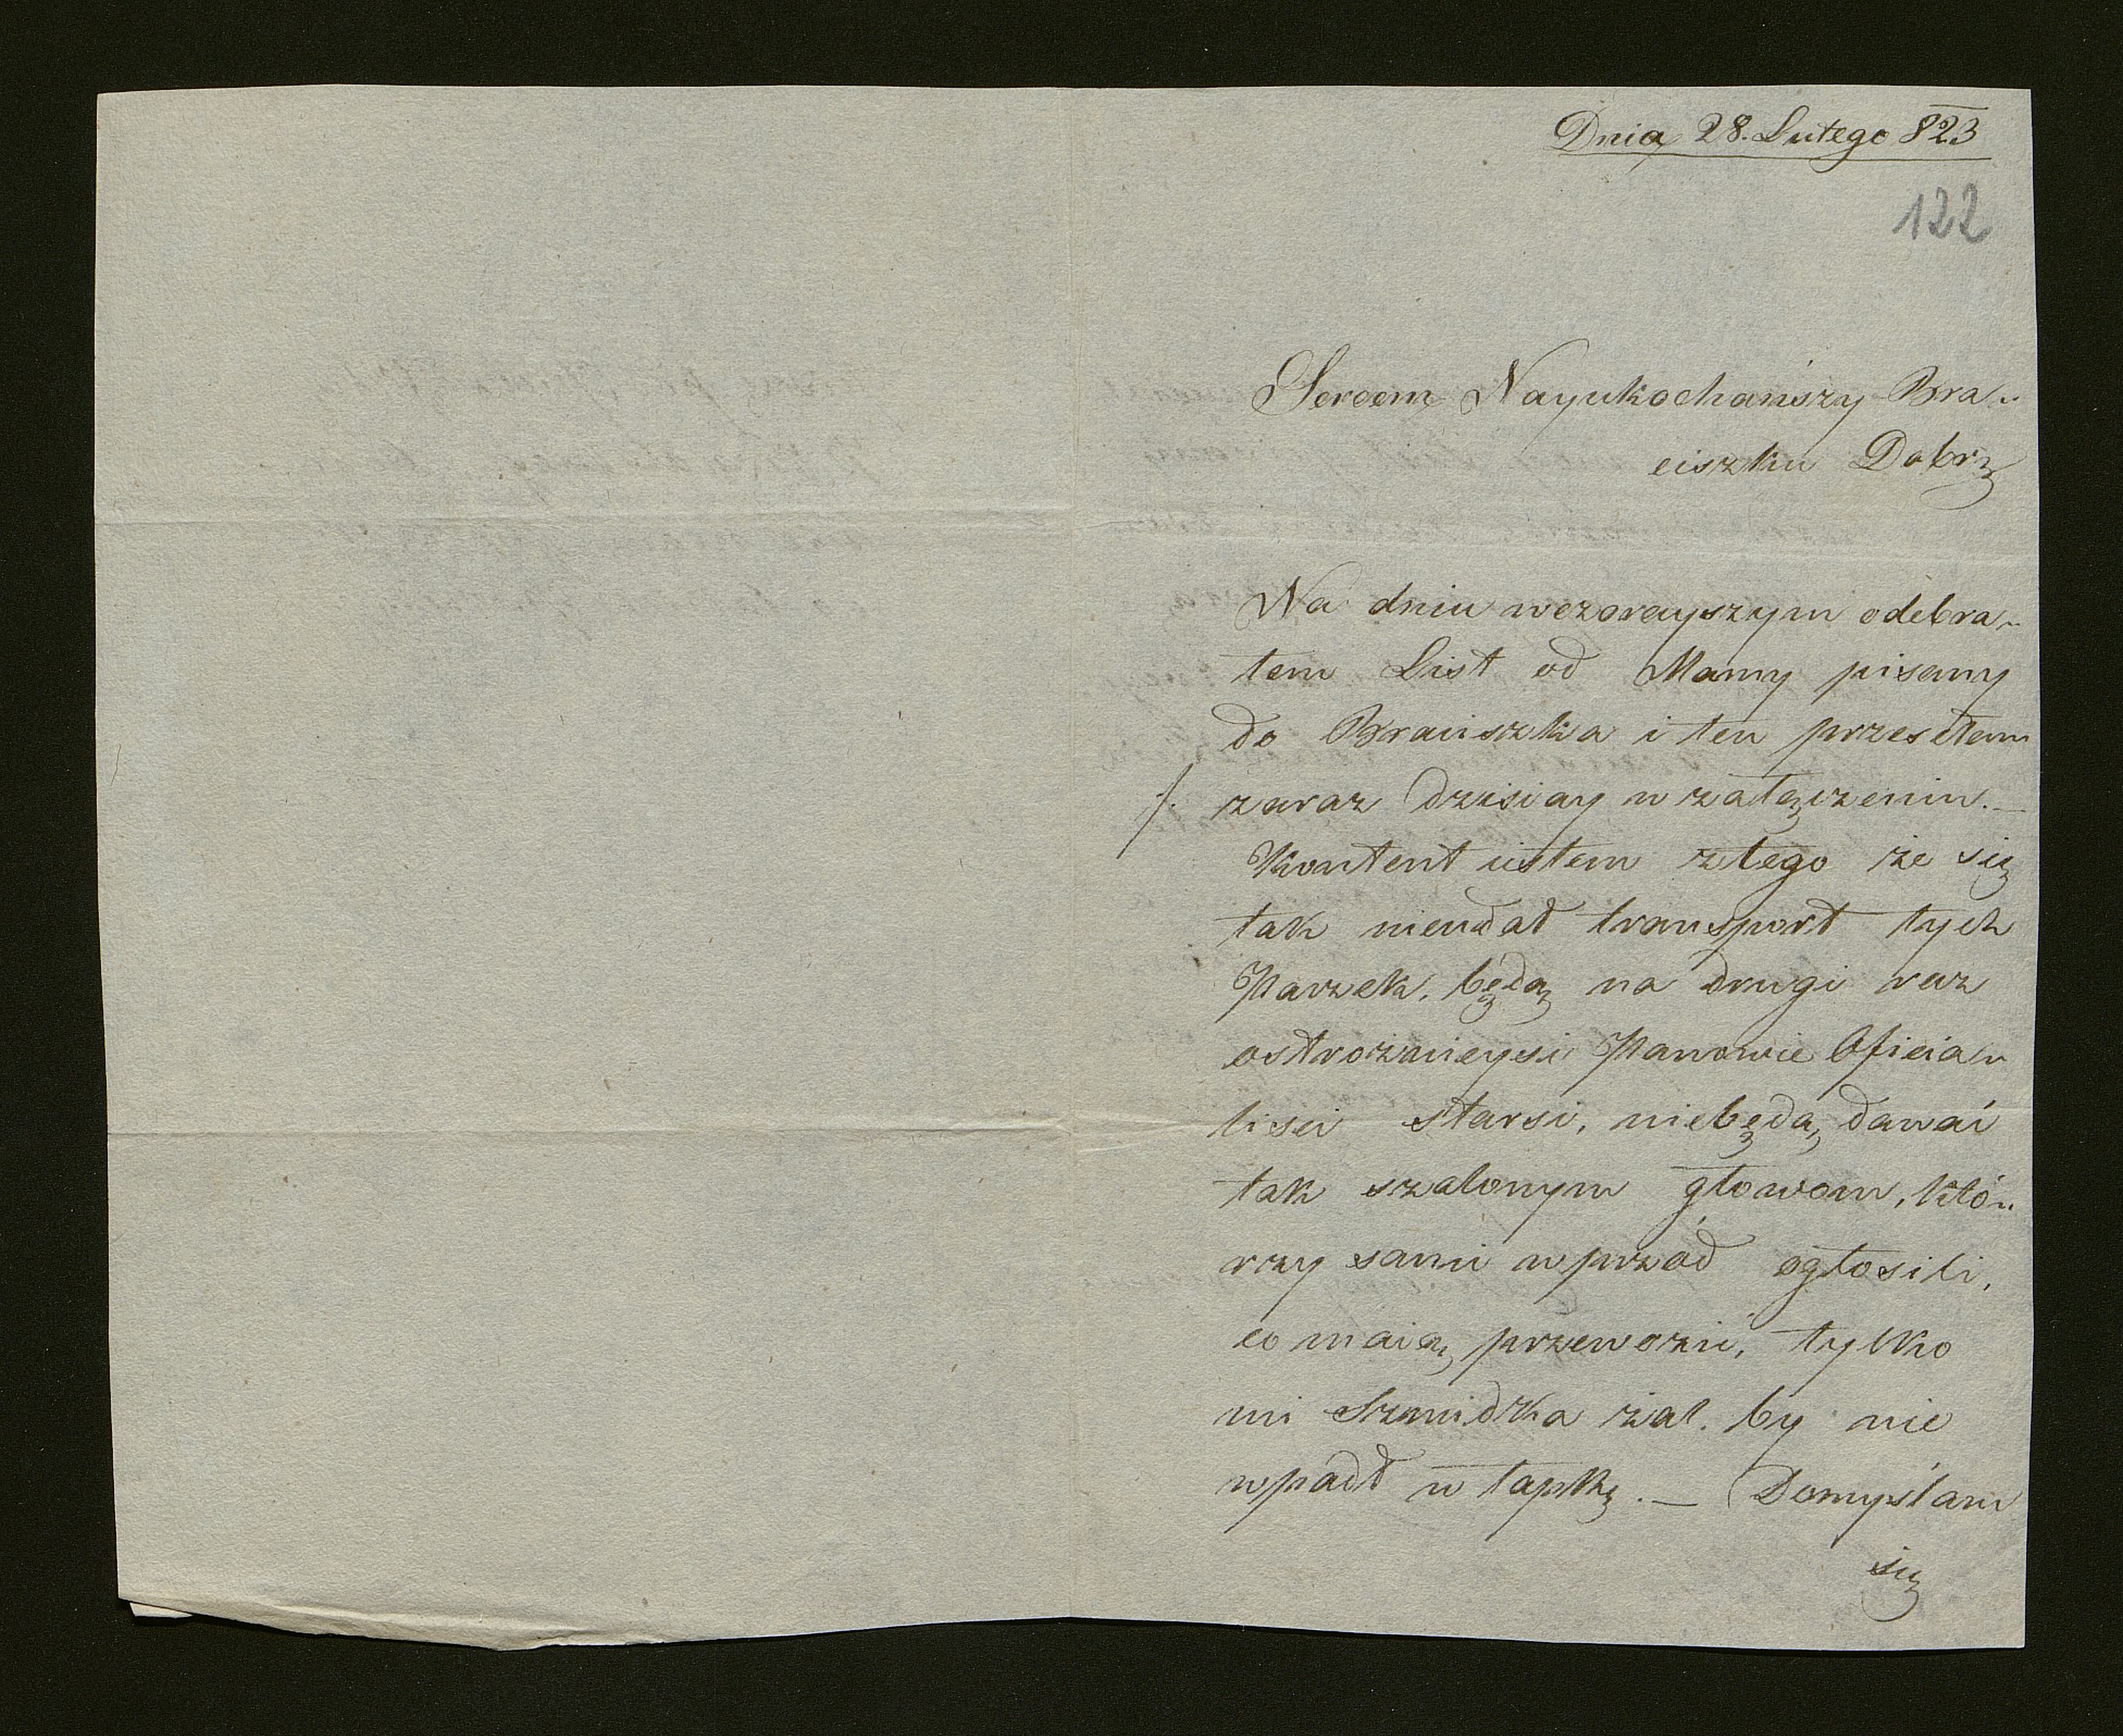 Dnia 28. Lutego 823
122
Sercem Nayukochańszy Bra-
ciszku Dobrz
Na dniu wczorayszym odebra-
łem List od Mamy pisany
do Braciszka i ten przesełam
/. zaraz dzisiay w załączeniu. —
Kontent iestem z tego że się
tak nieudał transport tych
Parzek, będą na drugi raz
ostrożnieysi Panowie Oficia-
liści starsi, niebędą dawać
tak szalonym głowom, któ-
rzy sami wprzód ogłosili,
co maią przewozić, tylko
mi Szmidka żal. by nie
wpadł w łapkę. — Domyślam
się